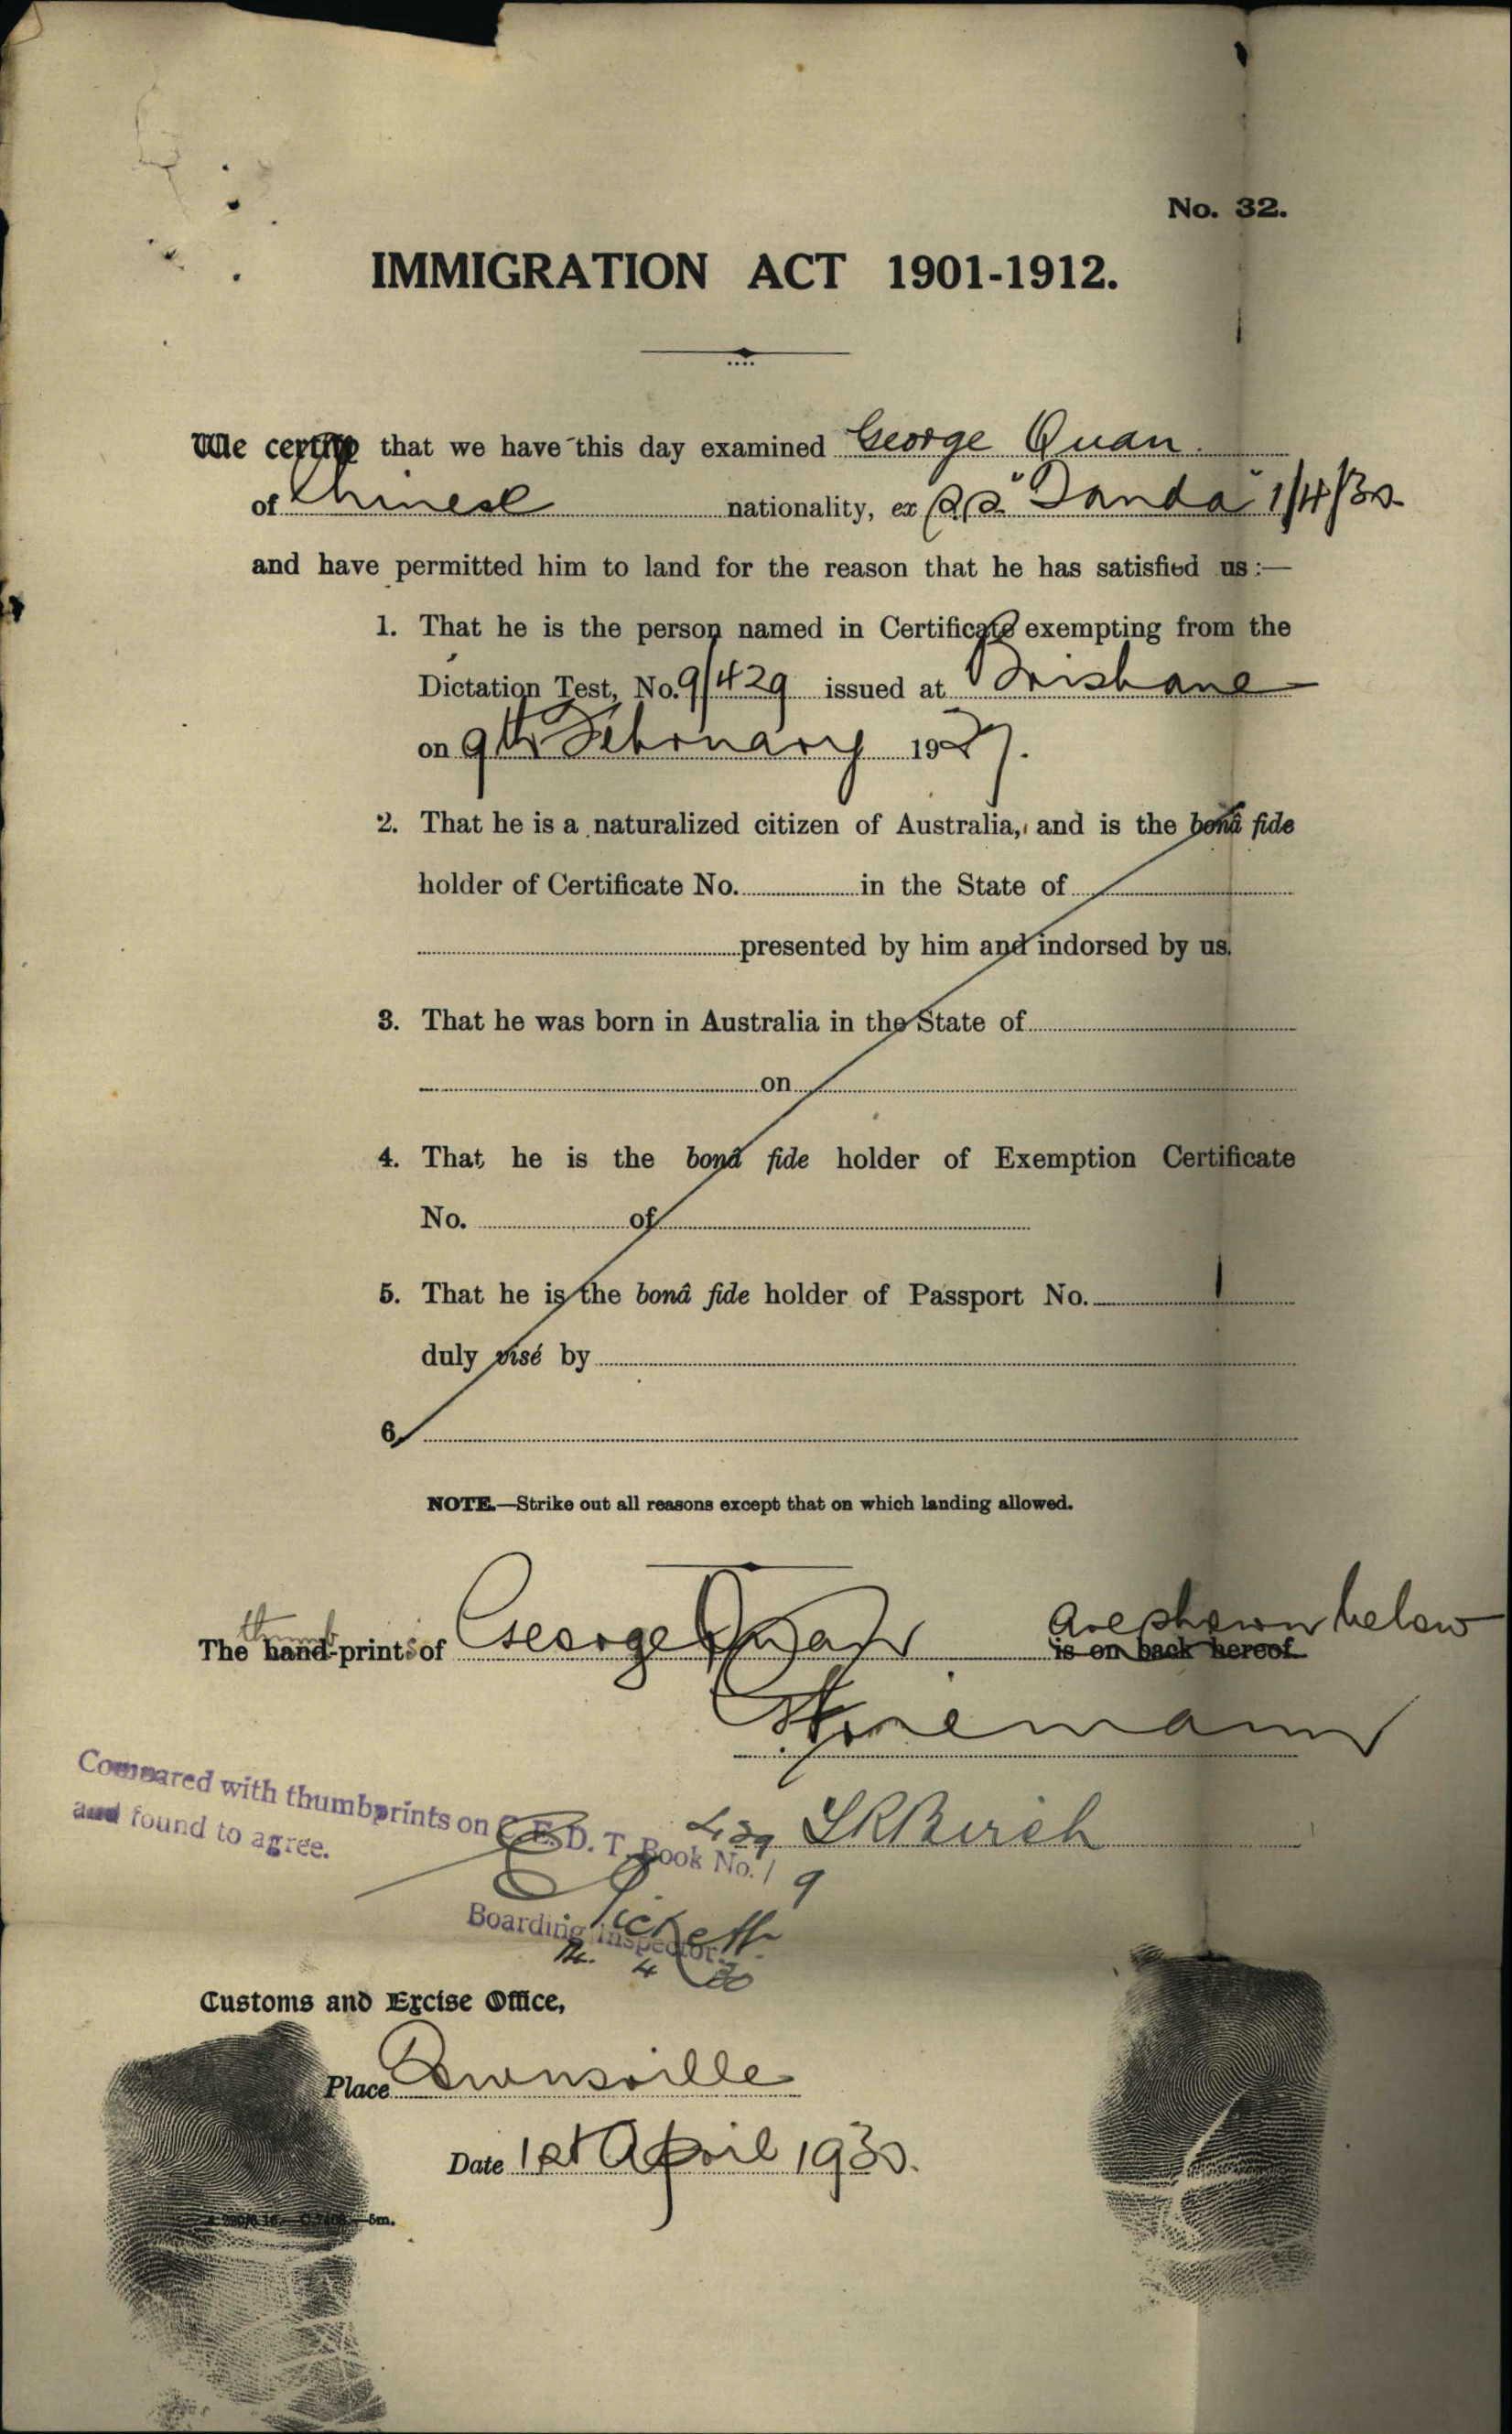 No. 32.
IMMIGRATION ACT 1901-1912.
We certify that we have this day examined George Quan.
of Chinese nationality, ex s.s. "Tanda" 1/4/30
and have permitted him to land for the reason that he has satisfied us:—
1. That he is the person named in Certificate exempting from the
Dictation Test, No. 9/429 issued at Brisbane
on 9th February 1927.
2. That he is a naturalized citizen of Australia, and is the bonâ fide
holder of Certificate No. in the State of
presented by him and indorsed by us.
3. That he was born in Australia in the State of
on
4. That he is the bonâ fide holder of Exemption Certificate
No. of
5. That he is the bonâ fide holder of Passport No.
duly visé by
6.
NOTE.—Strike out all reasons except that on which landing allowed.
are shown below
thumb
The hand-prints of George Quan is on back hereof
Compared with thumbprints on C.E.D.T. Book No. 429/9
and found to agree.
LR Birch
Boarding Inspector.
4 30
Customs and Excise Office,
Place Townsville
Date 1st April 1930.
5m.